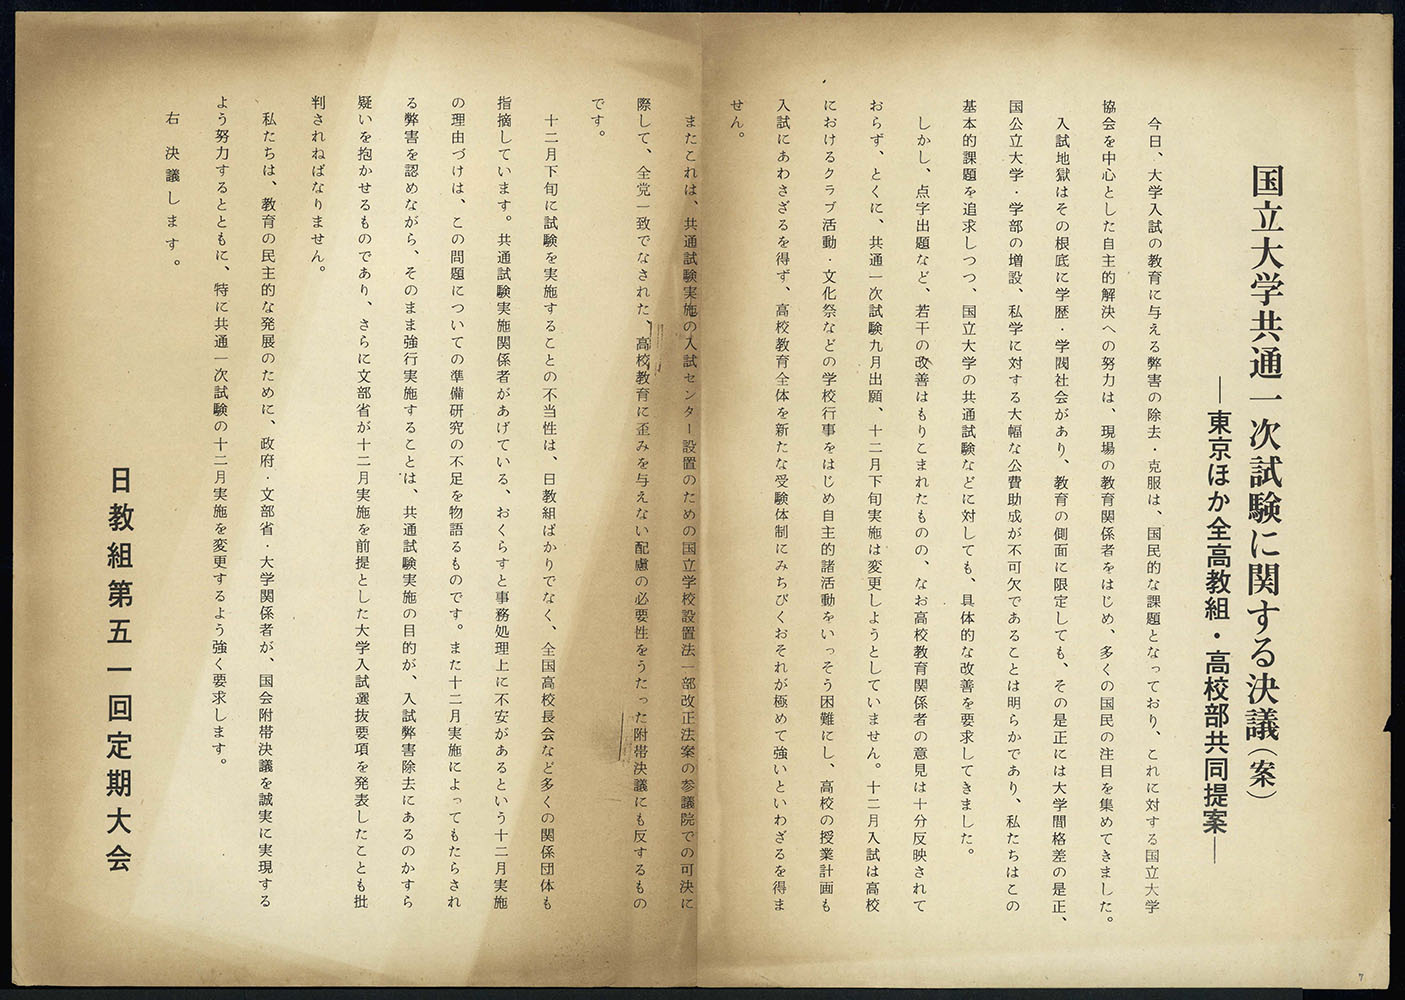 国立大学共通一次試験に関する決議（案）
―東京ほか全高教組・高校部共同提案―
今日、大学入試の教育に与える弊害の除去・克服は、国民的な課題となっており、これに対する国立大学
協会を中心とした自主的解決への努力は、現場の教育関係者をはじめ、多くの国民の注目を集めてきました。
入試地獄はその根底に学歴・学閥社会があり、教育の側面に限定しても、その是正には大学間格差の是正、
国公立大学・学部の増設、私学に対する大幅な公費助成が不可欠であることは明らかであり、私たちはこの
基本的課題を追求しつつ、国立大学の共通試験などに対しても、具体的な改善を要求してきました。
しかし、点字出題など、若干の改善はもりこまれたものの、なお高校教育関係者の意見は十分反映されて
おらず、とくに、共通一次試験九月出願、十二月下旬実施は変更しようとしていません。十二月入試は高校
におけるクラブ活動・文化祭などの学校行事をはじめ自主的諸活動をいっそう困難にし、高校の授業計画も
入試にあわさざるを得ず、高校教育全体を新たな受験体制にみちびくおそれが極めて強いといわざるを得ま
せん。
またこれは、共通試験実施の入試センター設置のための国立学校設置法一部改正法案の参議院での可決に
際して、全党一致でなされた、高校教育に歪みを与えない配慮の必要性をうたった附帯決議にも反するもの
です。
十二月下旬に試験を実施することの不当性は、日教組ばかりでなく、全国高校長会など多くの関係団体も
指摘しています。共通試験実施関係者があげている、おくらすと事務処理上に不安があるという十二月実施
の理由づけは、この問題についての準備研究の不足を物語るものです。また十二月実施によってもたらされ
る弊害を認めながら、そのまま強行実施することは、共通試験実施の目的が、入試弊害除去にあるのかすら
疑いを抱かせるものであり、さらに文部省が十二月実施を前提とした大学入試選抜要項を発表したことも批
判されねばなりません。
私たちは、教育の民主的な発展のために、政府・文部省・大学関係者が、国会附帯決議を誠実に実現する
よう努力するとともに、特に共通一次試験の十二月実施を変更するよう強く要求します。
右 決議します。
日教組第五一回定期大会
7